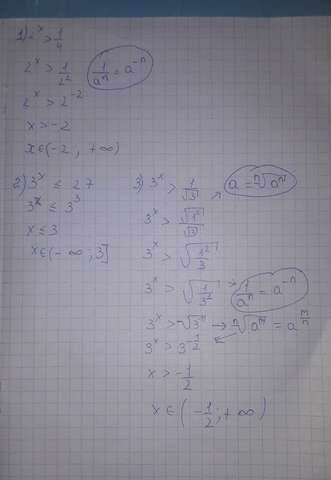 1) 2^x > 1/4
2^x > 1/2^2   1/a^n = a^-n
2^x > 2^-2
x > -2
x ∈ (-2, +∞)
2) 3^x ≤ 27
3^x ≤ 3^3
x ≤ 3
x ∈ (-∞; 3]
3) 3^x > 1/√3 → a = ⁿ√aⁿ
3^x > √1²/√3
3^x > √(1²/3)
1/a^n = a^-n
3^x → ⁿ√a^m = a^(m/n)
3^x > 3^(-1/2)
x > -1/2
x ∈ (-1/2; +∞)